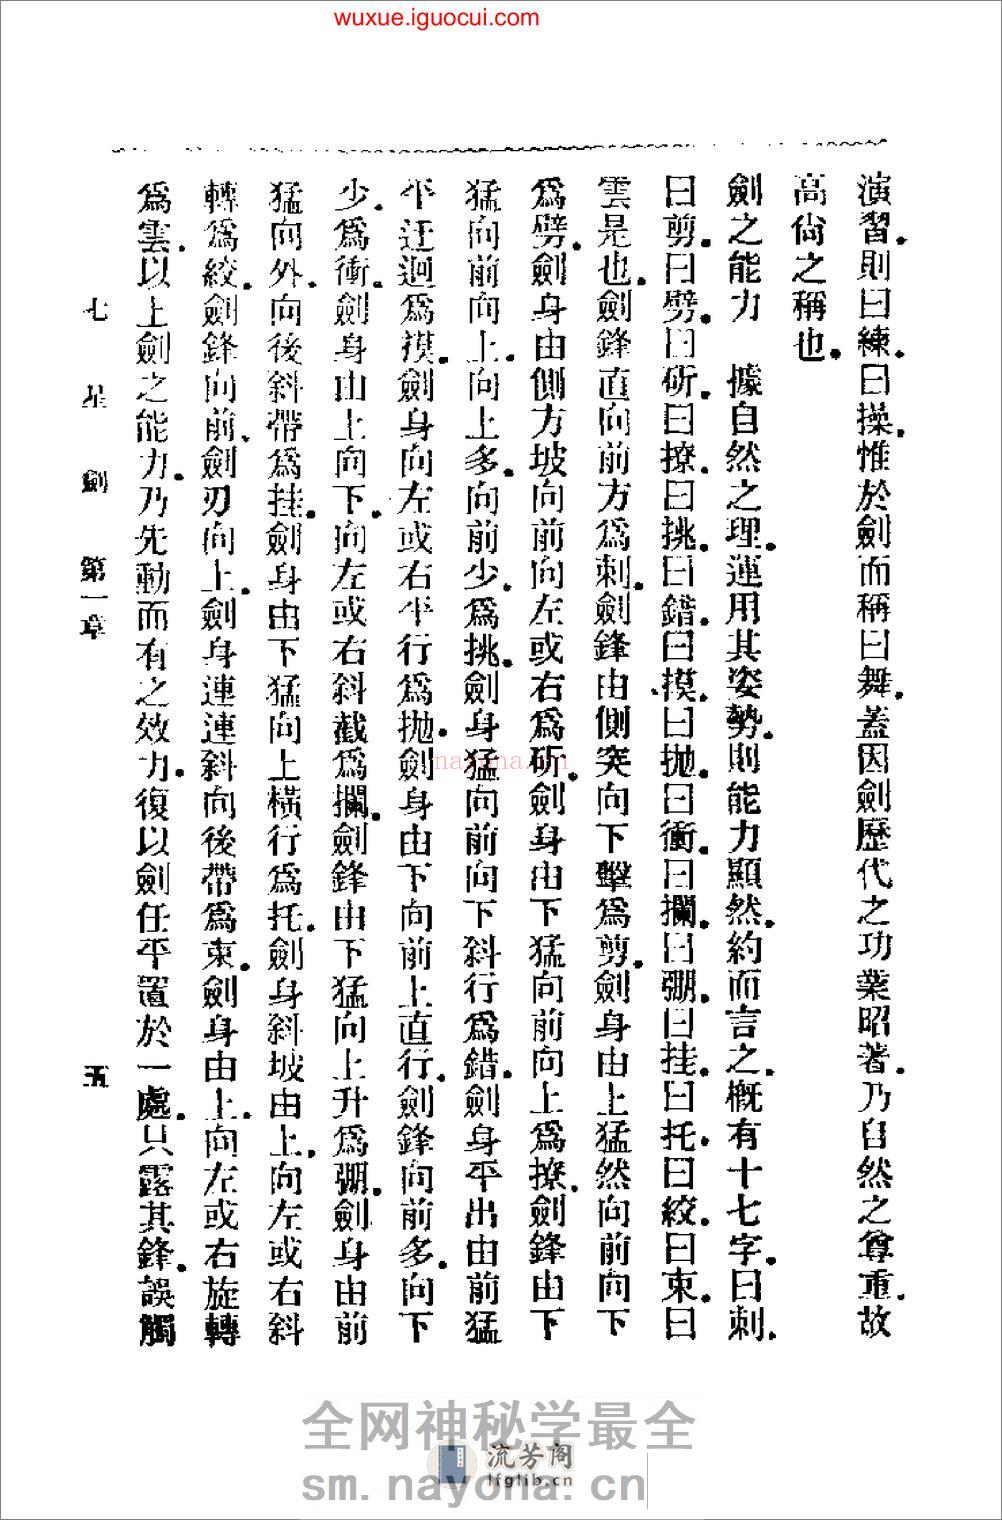 wuxue.iguocui.com
演習.則曰練.曰操.惟於劍而稱曰舞.蓋因劍歷代之功業昭著.乃自然之尊重.故
高尙之稱也.
劍之能力　據自然之理.運用其姿勢.則能力顯然.約而言之.槪有十七字.曰刺.
曰剪.曰劈.曰斫.曰撩.曰挑.曰錯.曰摸.曰拋.曰衝.曰攔.曰硼.曰挂.曰托.曰絞.曰束.曰
雲是也.劍鋒直向前方爲刺.劍鋒由側突向下擊爲剪.劍身由上猛然向前向下
爲劈.劍身由側方坡向前向左或右爲斫.劍身由下猛向前向上爲撩.劍鋒由下
猛向前向上.向上多.向前少.爲挑.劍身猛向前向下斜行爲錯.劍身平出由前猛
平迂迴爲摸.劍身向左或右平行爲拋.劍身由下向前上直行.劍鋒向前多.向下
少.爲衝.劍身由上向下.向左或右斜截爲攔.劍鋒由下猛向上升爲硼.劍身由前
猛向外.向後斜帶爲挂.劍身由下猛向上橫行爲托.劍身斜坡由上.向左或右斜
轉爲絞.劍鋒向前、劍刃向上.劍身連連斜向後帶爲束.劍身由上.向左或右旋轉
爲雲.以上劍之能力.乃先動而有之效力.復以劍任平置於一處.只露其鋒.誤觸
七星劍　第一章　五
nayona.cn
全网神秘学最全
流芳阁
lfglib.cn
sm.nayona.cn